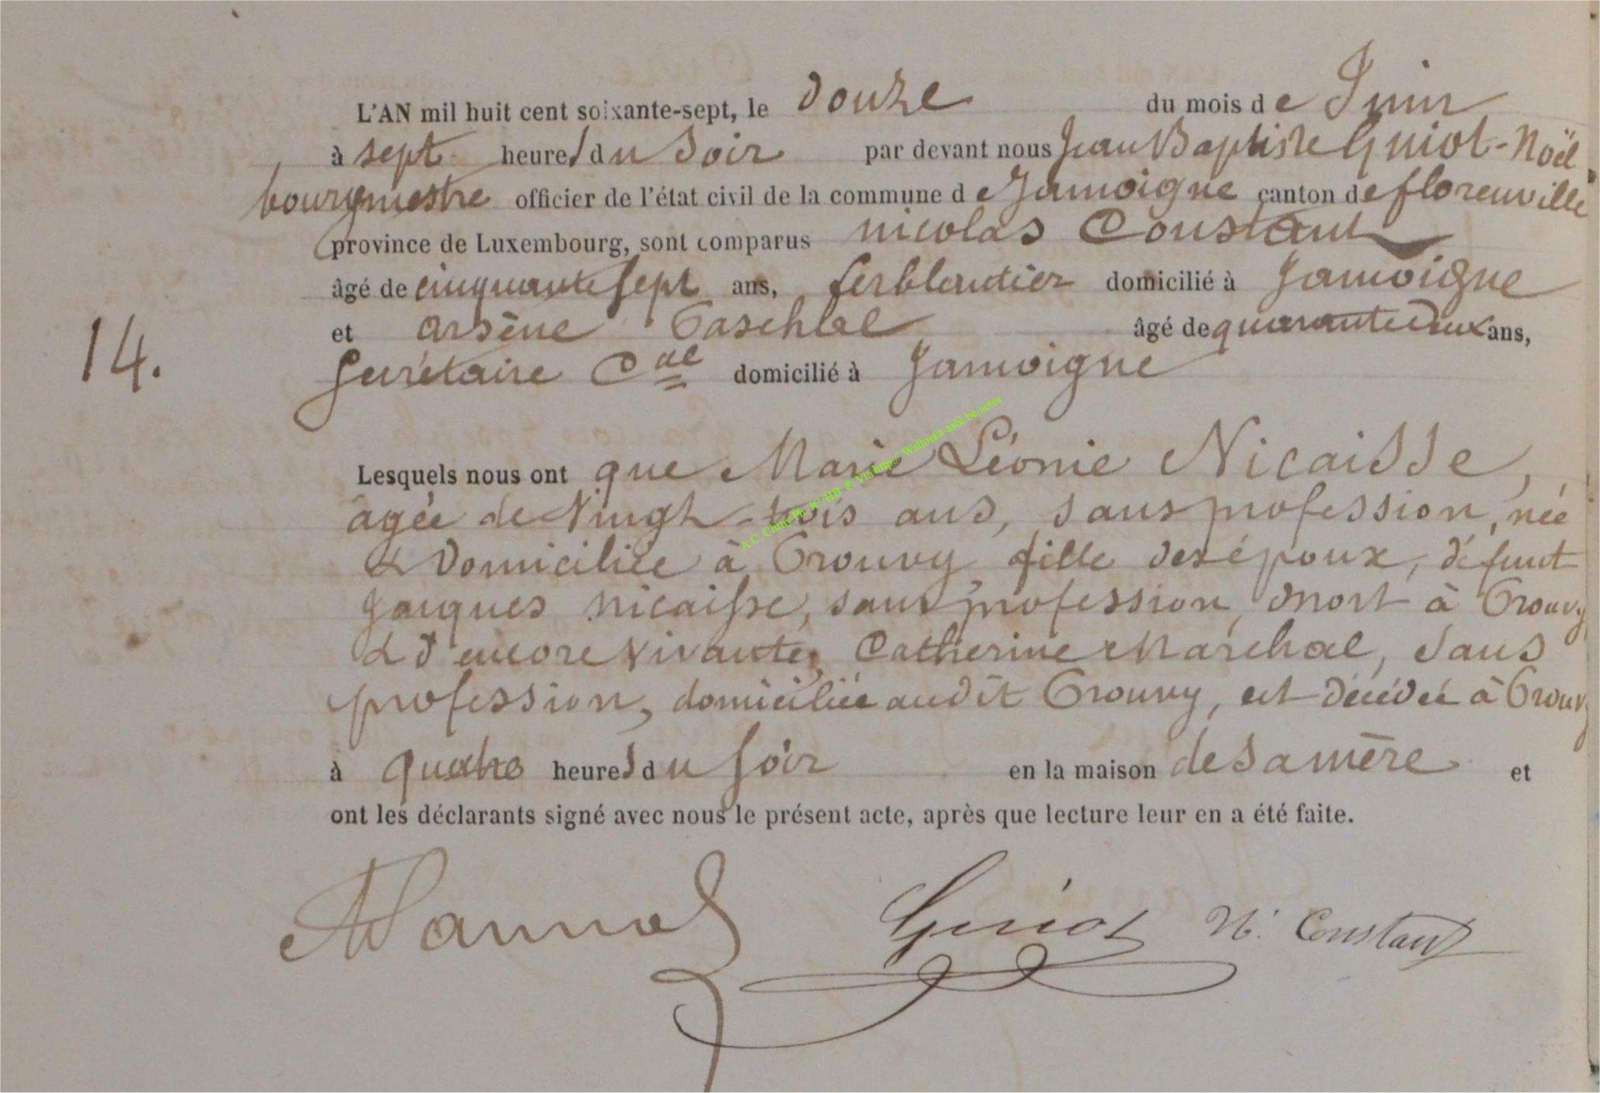 L'AN mil huit cent soixante-sept, le douze du mois de Juin
à sept heures du Soir par devant nous Jean Baptiste Guiot-Noël
bourgmestre officier de l'état civil de la commune de Jamoigne canton de florenville
province de Luxembourg, sont comparus nicolas Constant
âgé de cinquante sept ans, ferblantier domicilié à Jamoigne
et arsène âgé de quarante Deux ans,
14.
Secrétaire Cal domicilié à Jamoigne
Lesquels nous ont que Marie Léonie Nicaisse,
agée de Vingt-trois ans, sans profession, née
& Domiciliée à Prouvy, fille des époux, défunt
Jacques Nicaisse, sans profession, mort à Prouvy
& d'encore vivante, Catherine Marchal, sans
profession, domiciliée audit Prouvy, est décédée à Prouvy
à quatre heures du soir en la maison de sa mère et
ont les déclarants signé avec nous le présent acte, après que lecture leur en a été faite.
Guiot N. Constant